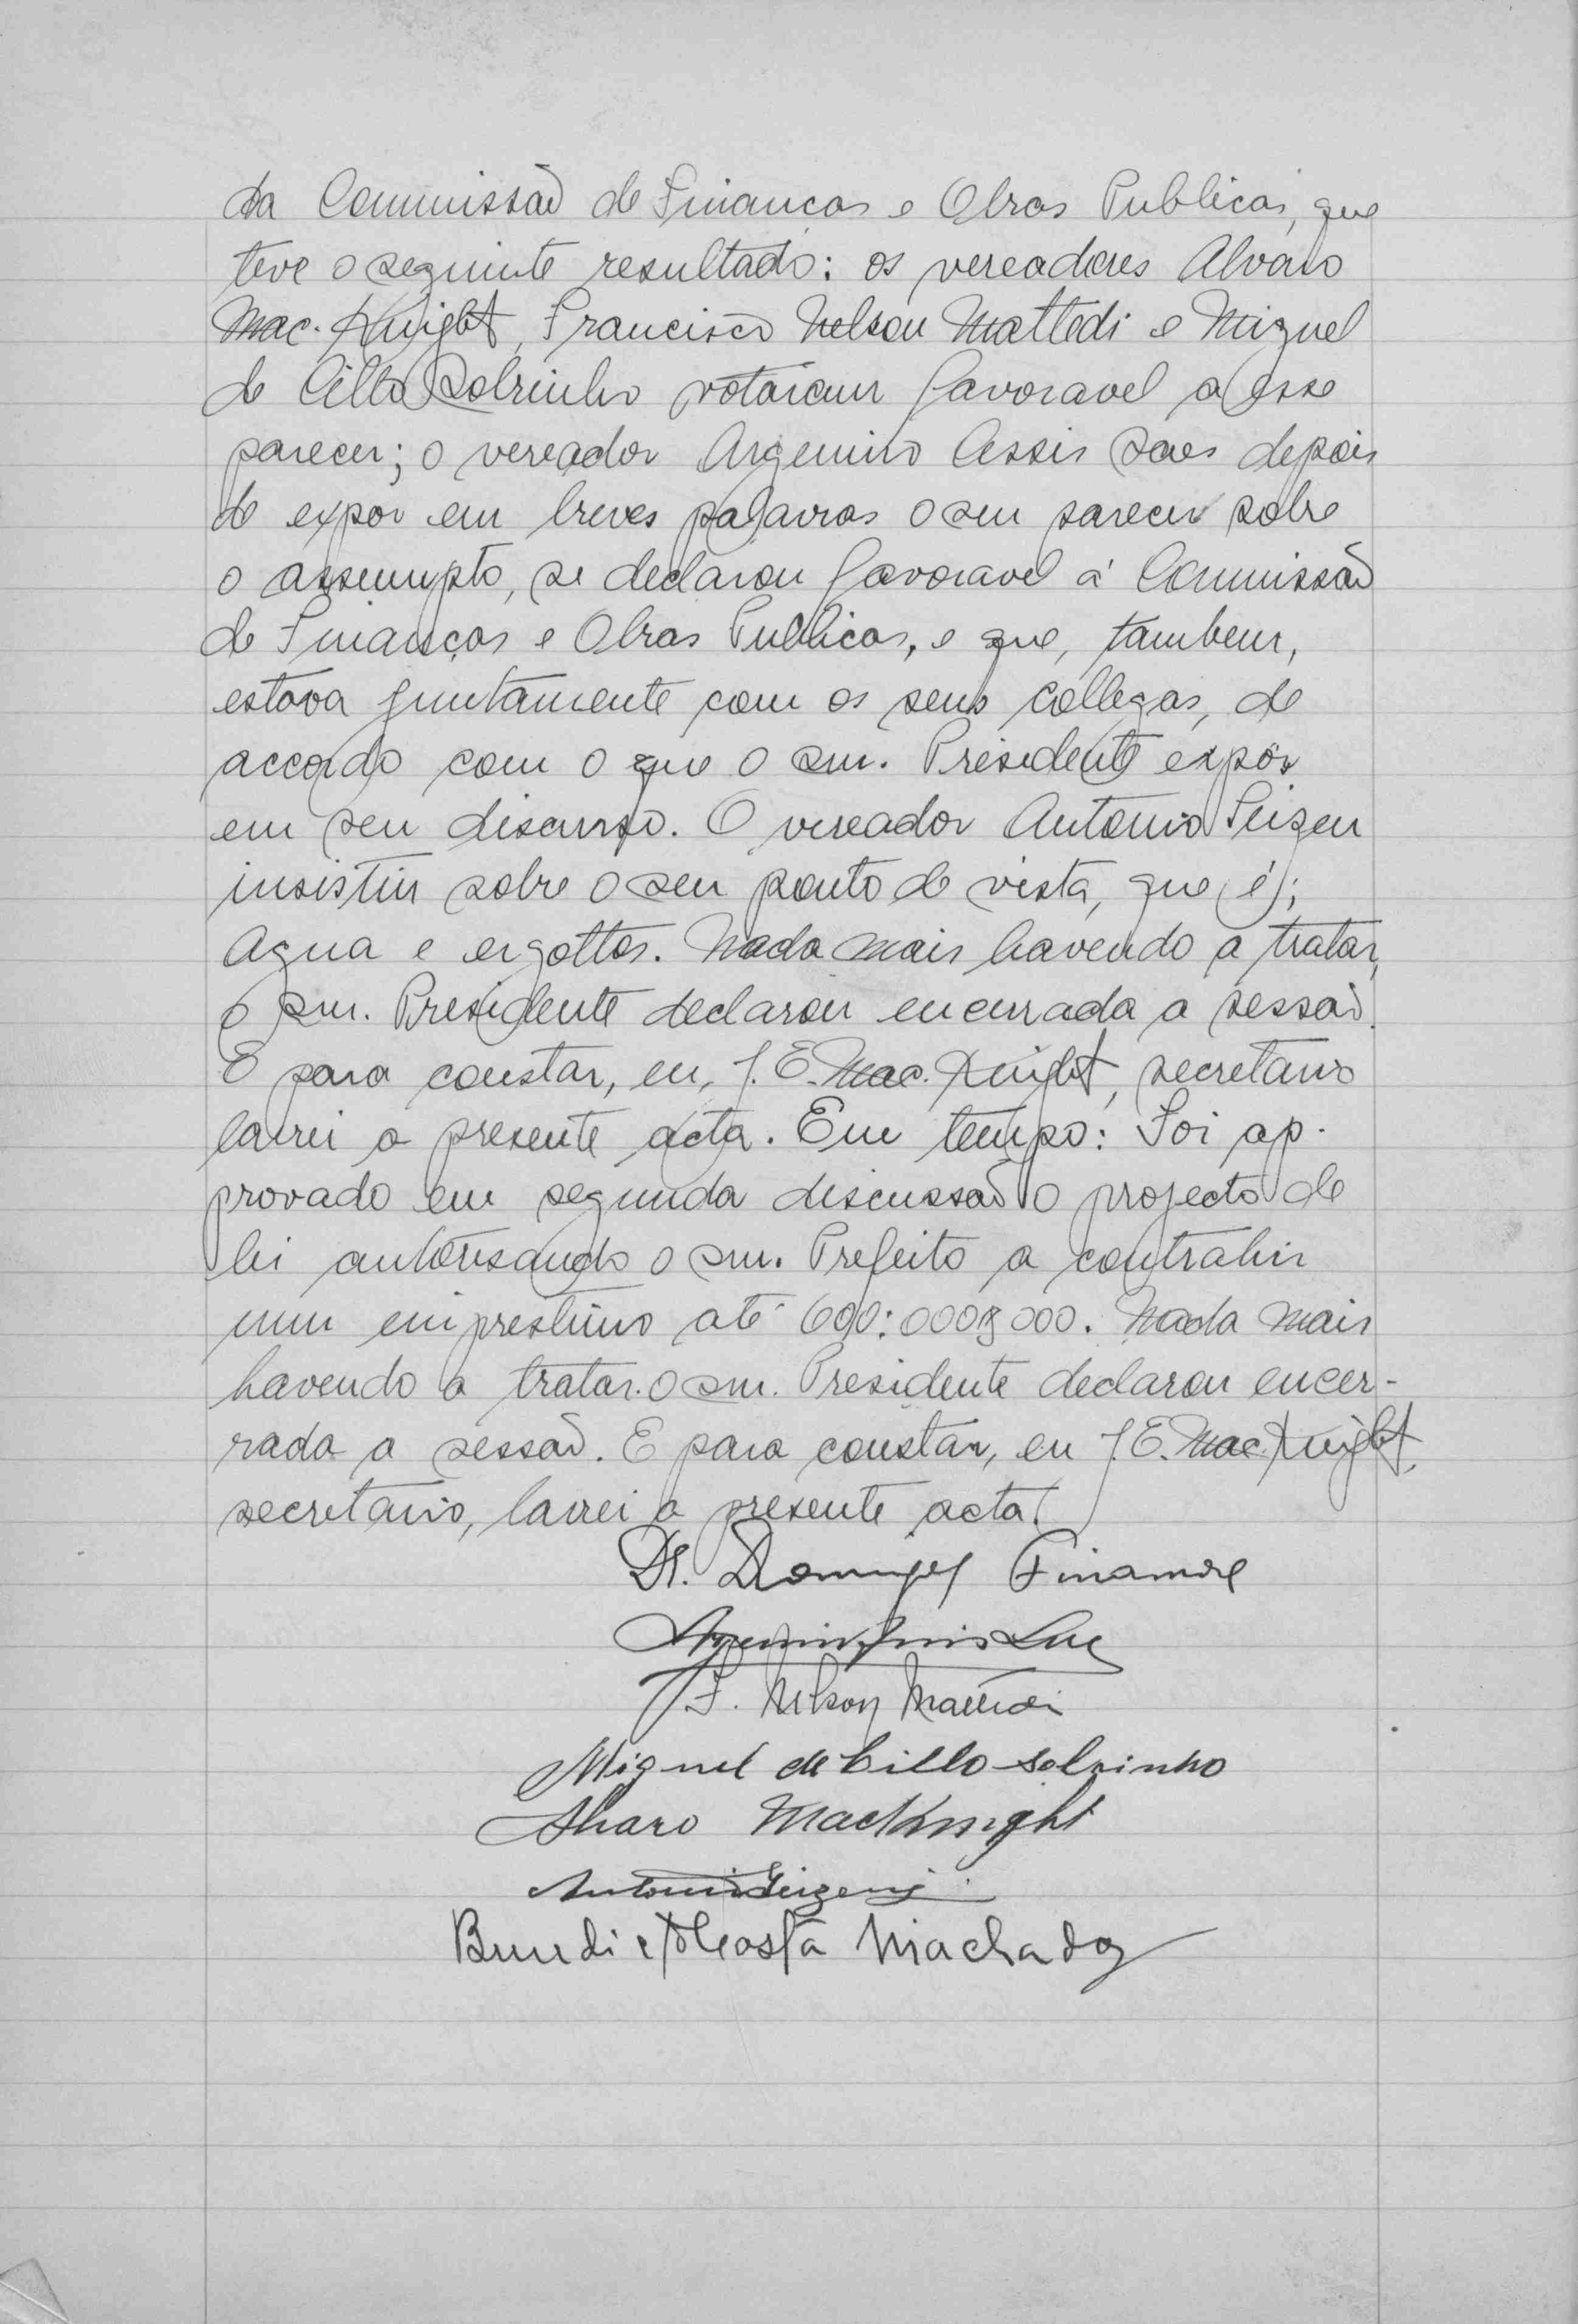 da Commissão de Finanças e Obras Publicas, que
teve o seguinte resultado: os vereadores Alvaro
Mac. Knight, Francisco Nelson Mattedi e Miguel
de Cillo Sobrinho votaram favoravel a esse
parecer; o vereador Argemiro Assis Saes depois
de expor em breves palavras o seu parecer sobre
o assumpto, se declarou favoravel á Commissão
de Finanças e Obras Publicas, e que, tambem,
estava juntamente com os seus collegas, de
accordo com o que o snr. Presidente expôs
em seu discurso. O vereador Antonio Feizen
insistiu sobre o seu ponto de vista, que é;
Agua e exgottos. Nada mais havendo a tratar,
o snr. Presidente declarou encerrada a sessão.
E para constar, eu, J. E. Mac. Knight, secretario
lavrei a presente acta. Em tempo: Foi ap-
provado em segunda discussão o projecto de
lei autorisando o snr. Prefeito a contrahir
um emprestimo até 600:000$000. Nada mais
havendo a tratar. O snr. Presidente declarou encer-
rada a sessão. E para constar, eu J. E. Mac. Knight,
secretario, lavrei a presente acta.
Dr. Domingos Finamore
F. Nelson Mattedi
Miguel de Cillo Sobrinho
Alvaro MacKnight
Antonio
Benedicto Costa Machado